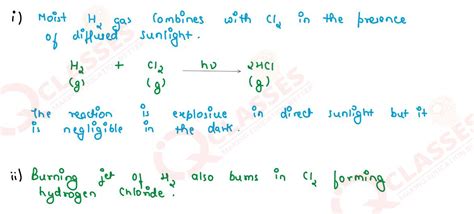 i) Moist H₂ gas combines with Cl₂ in the presence
of diffused sunlight.
H₂ + Cl₂ hν→ 2HCl
(g) (g) (g)
The reaction is explosive in direct sunlight but it
is negligible in the dark.
ii) Burning jet of H₂ also burns in Cl₂ forming
hydrogen chloride.
CLASSES
CLASSES